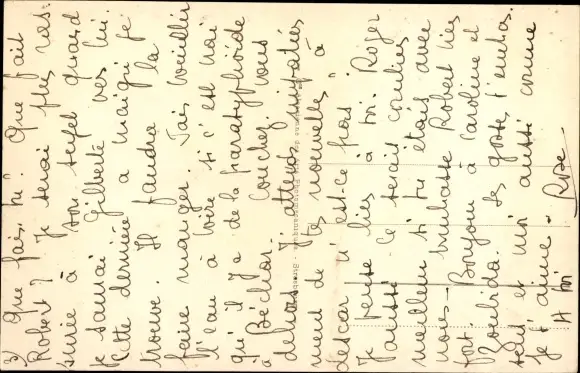 3) Que fais-tu? Que fait
Robert? Je serai plus ras-
surée à son sujet quand
je saurai Gilberte vers lui.
Cette dernière a maigri je
trouve. Il faudra la
faire manger. Fais bouillir
l'eau à boire si c'est vrai
qu'il y a de la paratyphoïde
à Béchar. Couchez vous
dehors? J'attends impatiem-
ment de tes nouvelles, à
descar n'est-ce pas?
Je pense bien à toi. Roger
aussi. Ce serait
meilleur si tu étais avec
nous. Embrasse Robert très
fort. Bonjour à Caroline et
Zoubida. Les gosses t'embras-
sent et moi aussi comme
je t'aime.
A toi Rose